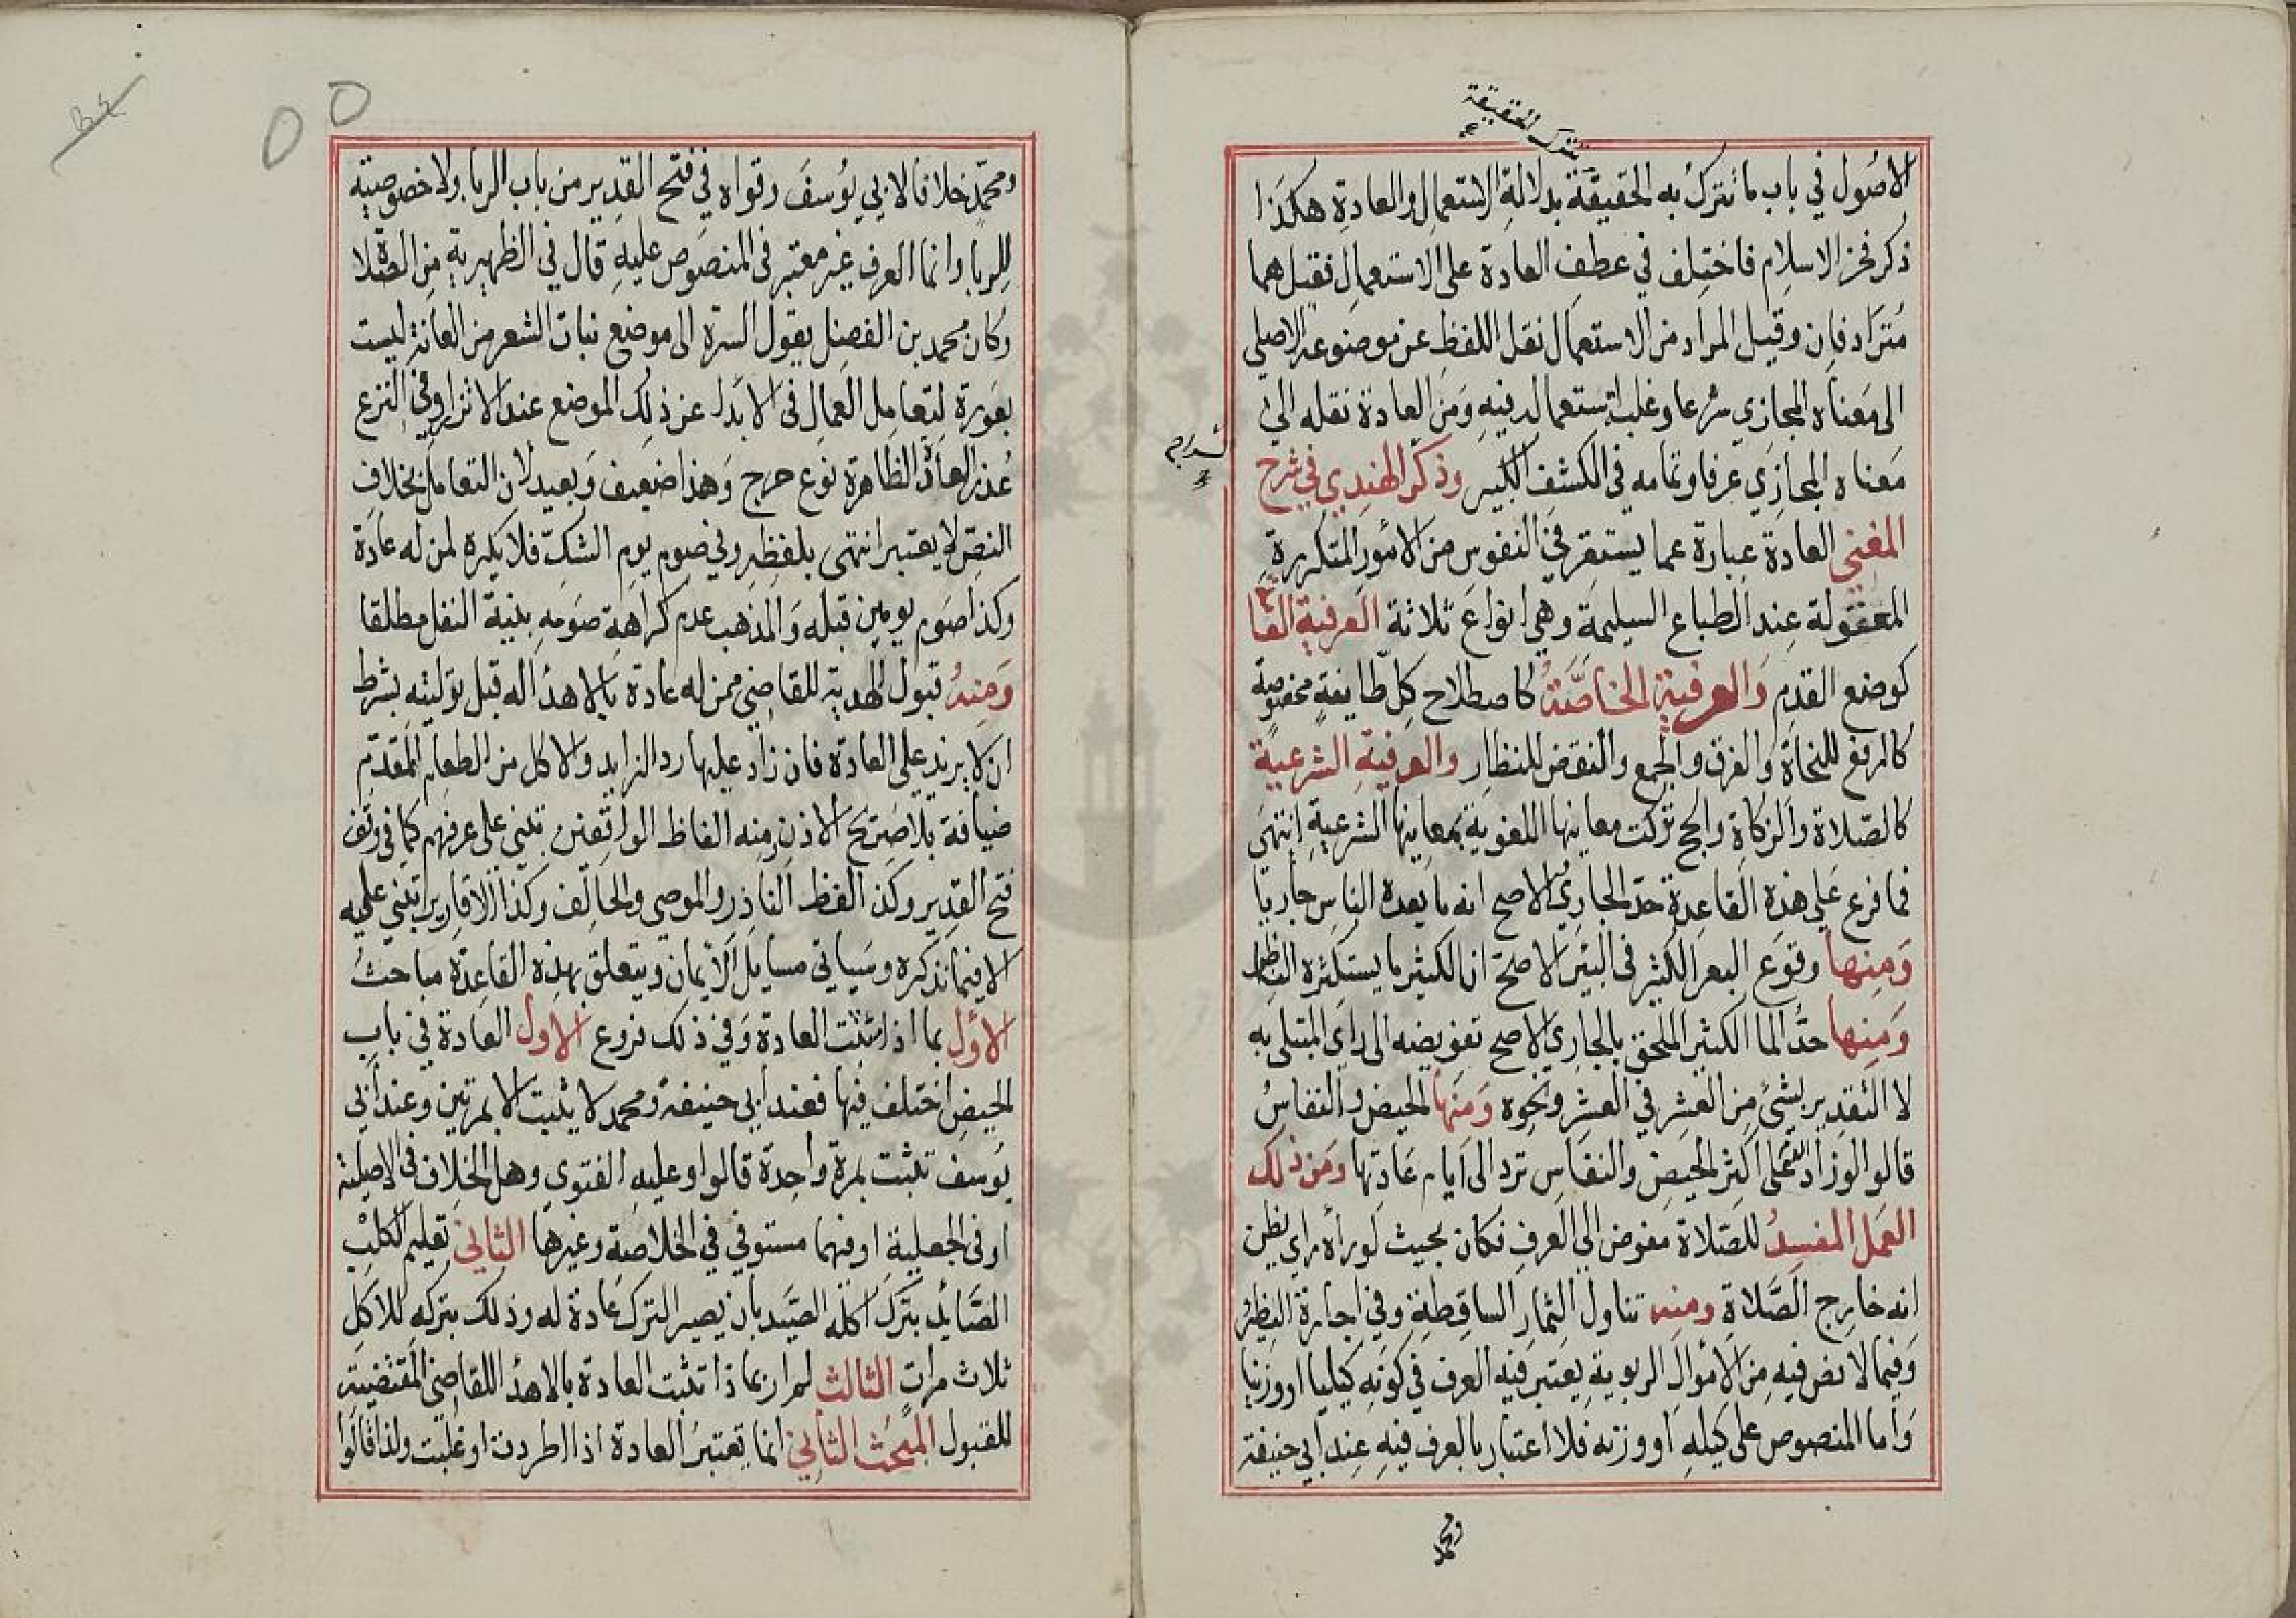 تترك الحقيقة
الاصول في باب ما تترك به الحقيقة بدلالة الاستعمال والعادة هكذا
ذكر فخر الاسلام فاختلف في عطف العادة على الاستعمال فقيل هما
مترادفان وقيل المراد من الاستعمال نقل اللفظ عن موضوعه الاصلي
الى معناه المجازي شرعا وغلبة استعماله فيه ومن العادة نقله الى
معناه المجازي عرفا وتمامه في الكشف الكبير وذكر الهندي في شرح
المغني العادة عبارة عما يستقر في النفوس من الامور المتكررة
المعقولة عند الطباع السليمة وهي انواع ثلاثة العرفية العا
كوضع القدم والعرفية الخاصة كاصطلاح كل طايفة مخصوصة
كالرفع للنحاة والفرق والجمع والنقض للنظار والعرفية الشرعية
كالصلاة والزكاة والحج تركت معانيها اللغوية بمعانيها الشرعية انتهى
فما فرع على هذه القاعدة حد الجاري الاصح انه ما يعده الناس جاريا
ومنها وقوع البعر الكثير في البئر الاصح ان الكثير ما يستكثره الناظر
ومنها حد الما الكثير الملحق بالجاري الاصح تفويضه الى راي المبتلى به
لا التقدير بشئ من العشر في العشر ونحوه ومنها الحيض والنفاس
قالوا لو زاد الدم على اكثر الحيض والنفاس ترد الى ايام عادتها ومن ذلك
العمل المفسد للصلاة مفوض الى العرف فكان بحيث لو رأه راي يظن
انه خارج الصلاة ومنه تناول الثمار الساقطة وفي اجارة الظئر
وفيما لا نص فيه من الاموال الربوية يعتبر فيه العرف في كونه كيليا او وزنيا
واما المنصوص على كيله او وزنه فلا اعتبار بالعرف فيه عند ابي حنيفة
ومحمد
ومحمد خلافا لابي يوسف وقواه في فتح القدير من باب الربا ولا خصوصية
للربا وانما العرف غير معتبر في المنصوص عليه قال في الظهيرية من الصلاة
وكان محمد بن الفضل يقول السرة الى موضع نبات الشعر من العانة ليست
بعورة لتعامل العمال في الابدا عن ذلك الموضع عند الاتزار وفي النزع
عن العادة الظاهرة نوع حرج وهذا ضعيف وبعيد لان التعامل بخلاف
النص لا يعتبر انتهى بلفظه وفي صوم يوم الشك فلا يكره لمن له عادة
وكذا صوم يومين قبله والمذهب عدم كراهة صومه بنية النفل مطلقا
ومنه قبول الهدية للقاضي ممن له عادة بالاهدأ له قبل توليته بشرط
ان لا يزيد على العادة فان زاد عليها رد الزايد والاكل من الطعام المقدم
ضيافة بلا صريح الاذن ومنه الفاظ الواقفين تبنى على عرفهم كما في وقف
فتح القدير وكذا لفظ الناذر والموصي والحالف وكذا الاقارير تبنى عليه
الا فيما نذكره وسياتي مسايل الايمان ويتعلق بهذه القاعدة مباحث
الاول بما اذا تثبت العادة وفي ذلك فروع الاول العادة في باب
الحيض اختلف فيها فعند ابي حنيفة ومحمد لا يثبت الا بمرتين وعند ابي
يوسف تثبت بمرة واحدة قالوا وعليه الفتوى وهل الخلاف في الاصلية
او في الجعلية او فيهما مستوفي في الخلاصة وغيرها الثاني تعليم الكلب
الصائد بترك اكله الصيد بان يصير الترك عادة له وذلك بتركه للاكل
ثلاث مرات الثالث لم ار بماذا تثبت العادة بالاهدأ للقاضي المقتضية
للقبول المبحث الثاني انما تعتبر العادة اذا اطردت او غلبت ولذا قالوا